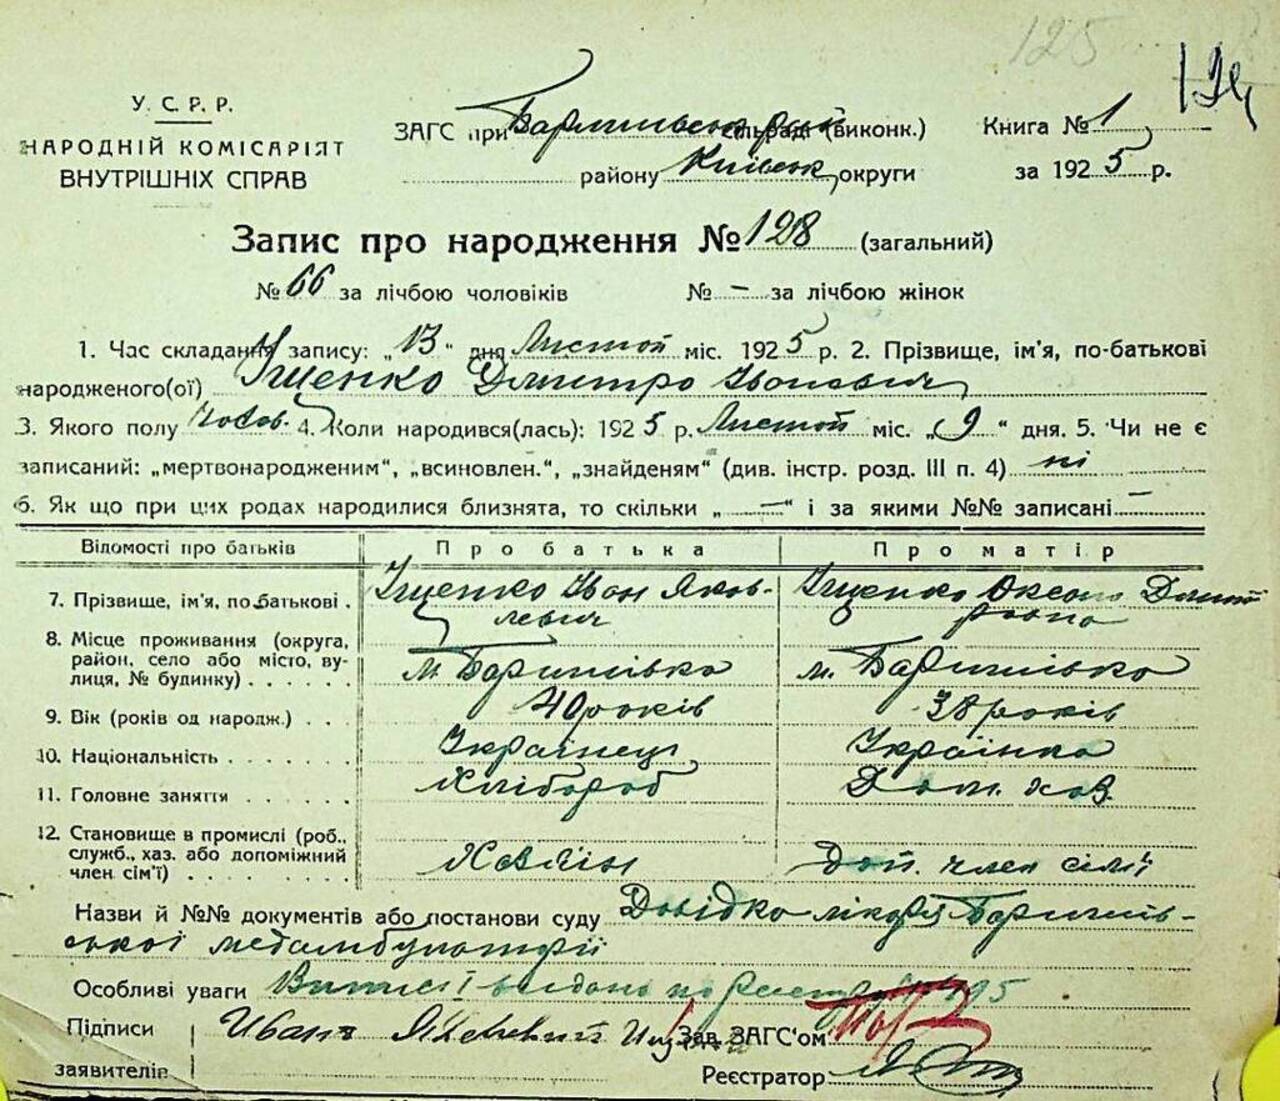 125
У. С. Р. Р.
НАРОДНІЙ КОМІСАРІЯТ
ВНУТРІШНІХ СПРАВ
ЗАГС при сільраді (виконк.)
району Київськ округи
Книга № 1
за 1925 р.
Запис про народження № 128 (загальний)
№ 66 за лічбою чоловіків № — за лічбою жінок
1. Час складання запису: „13" дня Листоп міс. 1925 р. 2. Прізвище, ім'я, по-батькові
народженого(ої) Іщенко Дмитро Іванович
3. Якого полу 4. Коли народився(лась): 1925 р. Листоп міс. „9" дня. 5. Чи не є
записаний: „мертвонародженим", „всиновлен.", „знайденям" (див. інстр. розд. III п. 4) ні
6. Як що при цих родах народилися близнята, то скільки „—" і за якими №№ записані —
Відомості про батьків Про батька Про матір
7. Прізвище, ім'я, по батькові . Іщенко Іван Яков-
левич
Іщенко Оксана Дмит
ровна
8. Місце проживання (округа,
район, село або місто, ву-
лиця, № будинку) . . . . . . м. Баришівка м. Баришівка
9. Вік (років од народж.) . . . 40 років 38 років
10. Національність . . . . . . . Українець Українка
11. Головне заняття . . . . . . Хлібороб Дом. хаз.
12. Становище в промислі (роб.,
служб., хаз. або допоміжний
член сім'ї) . . . . . . . . . Хазяїн Доп. член сімї
Назви й №№ документів або постанови суду Довідка лікаря Баришів-
ської медамбулаторії
Особливі уваги Виписі видано по реєстру
Підписи
заявителів
Иванъ
Зав. ЗАГС'ом
Реєстратор